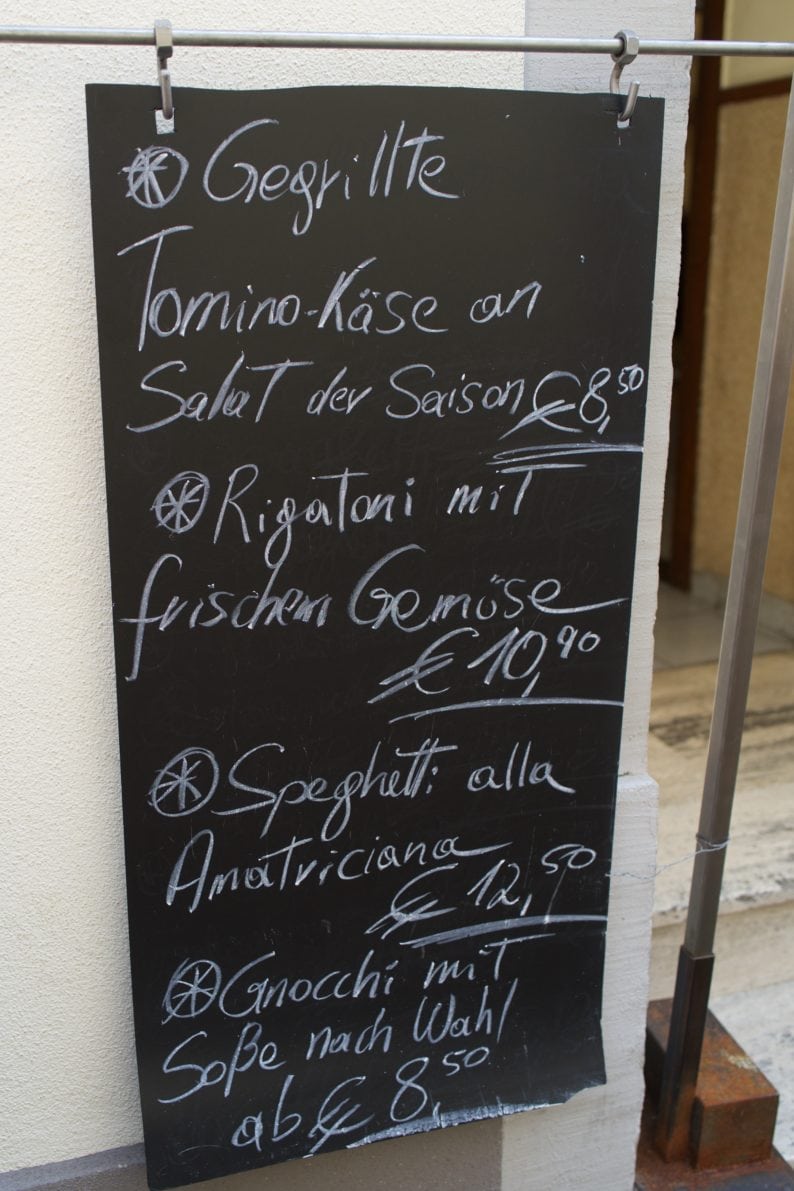 Gegrillte
Tomino-Käse an
Salat der Saison € 8,50
Rigatoni mit
frischem Gemöse
€ 10,90
Speghetti alla
Amatriciana
€ 12,50
Gnocchi mit
Soße nach Wahl
ab € 8,50